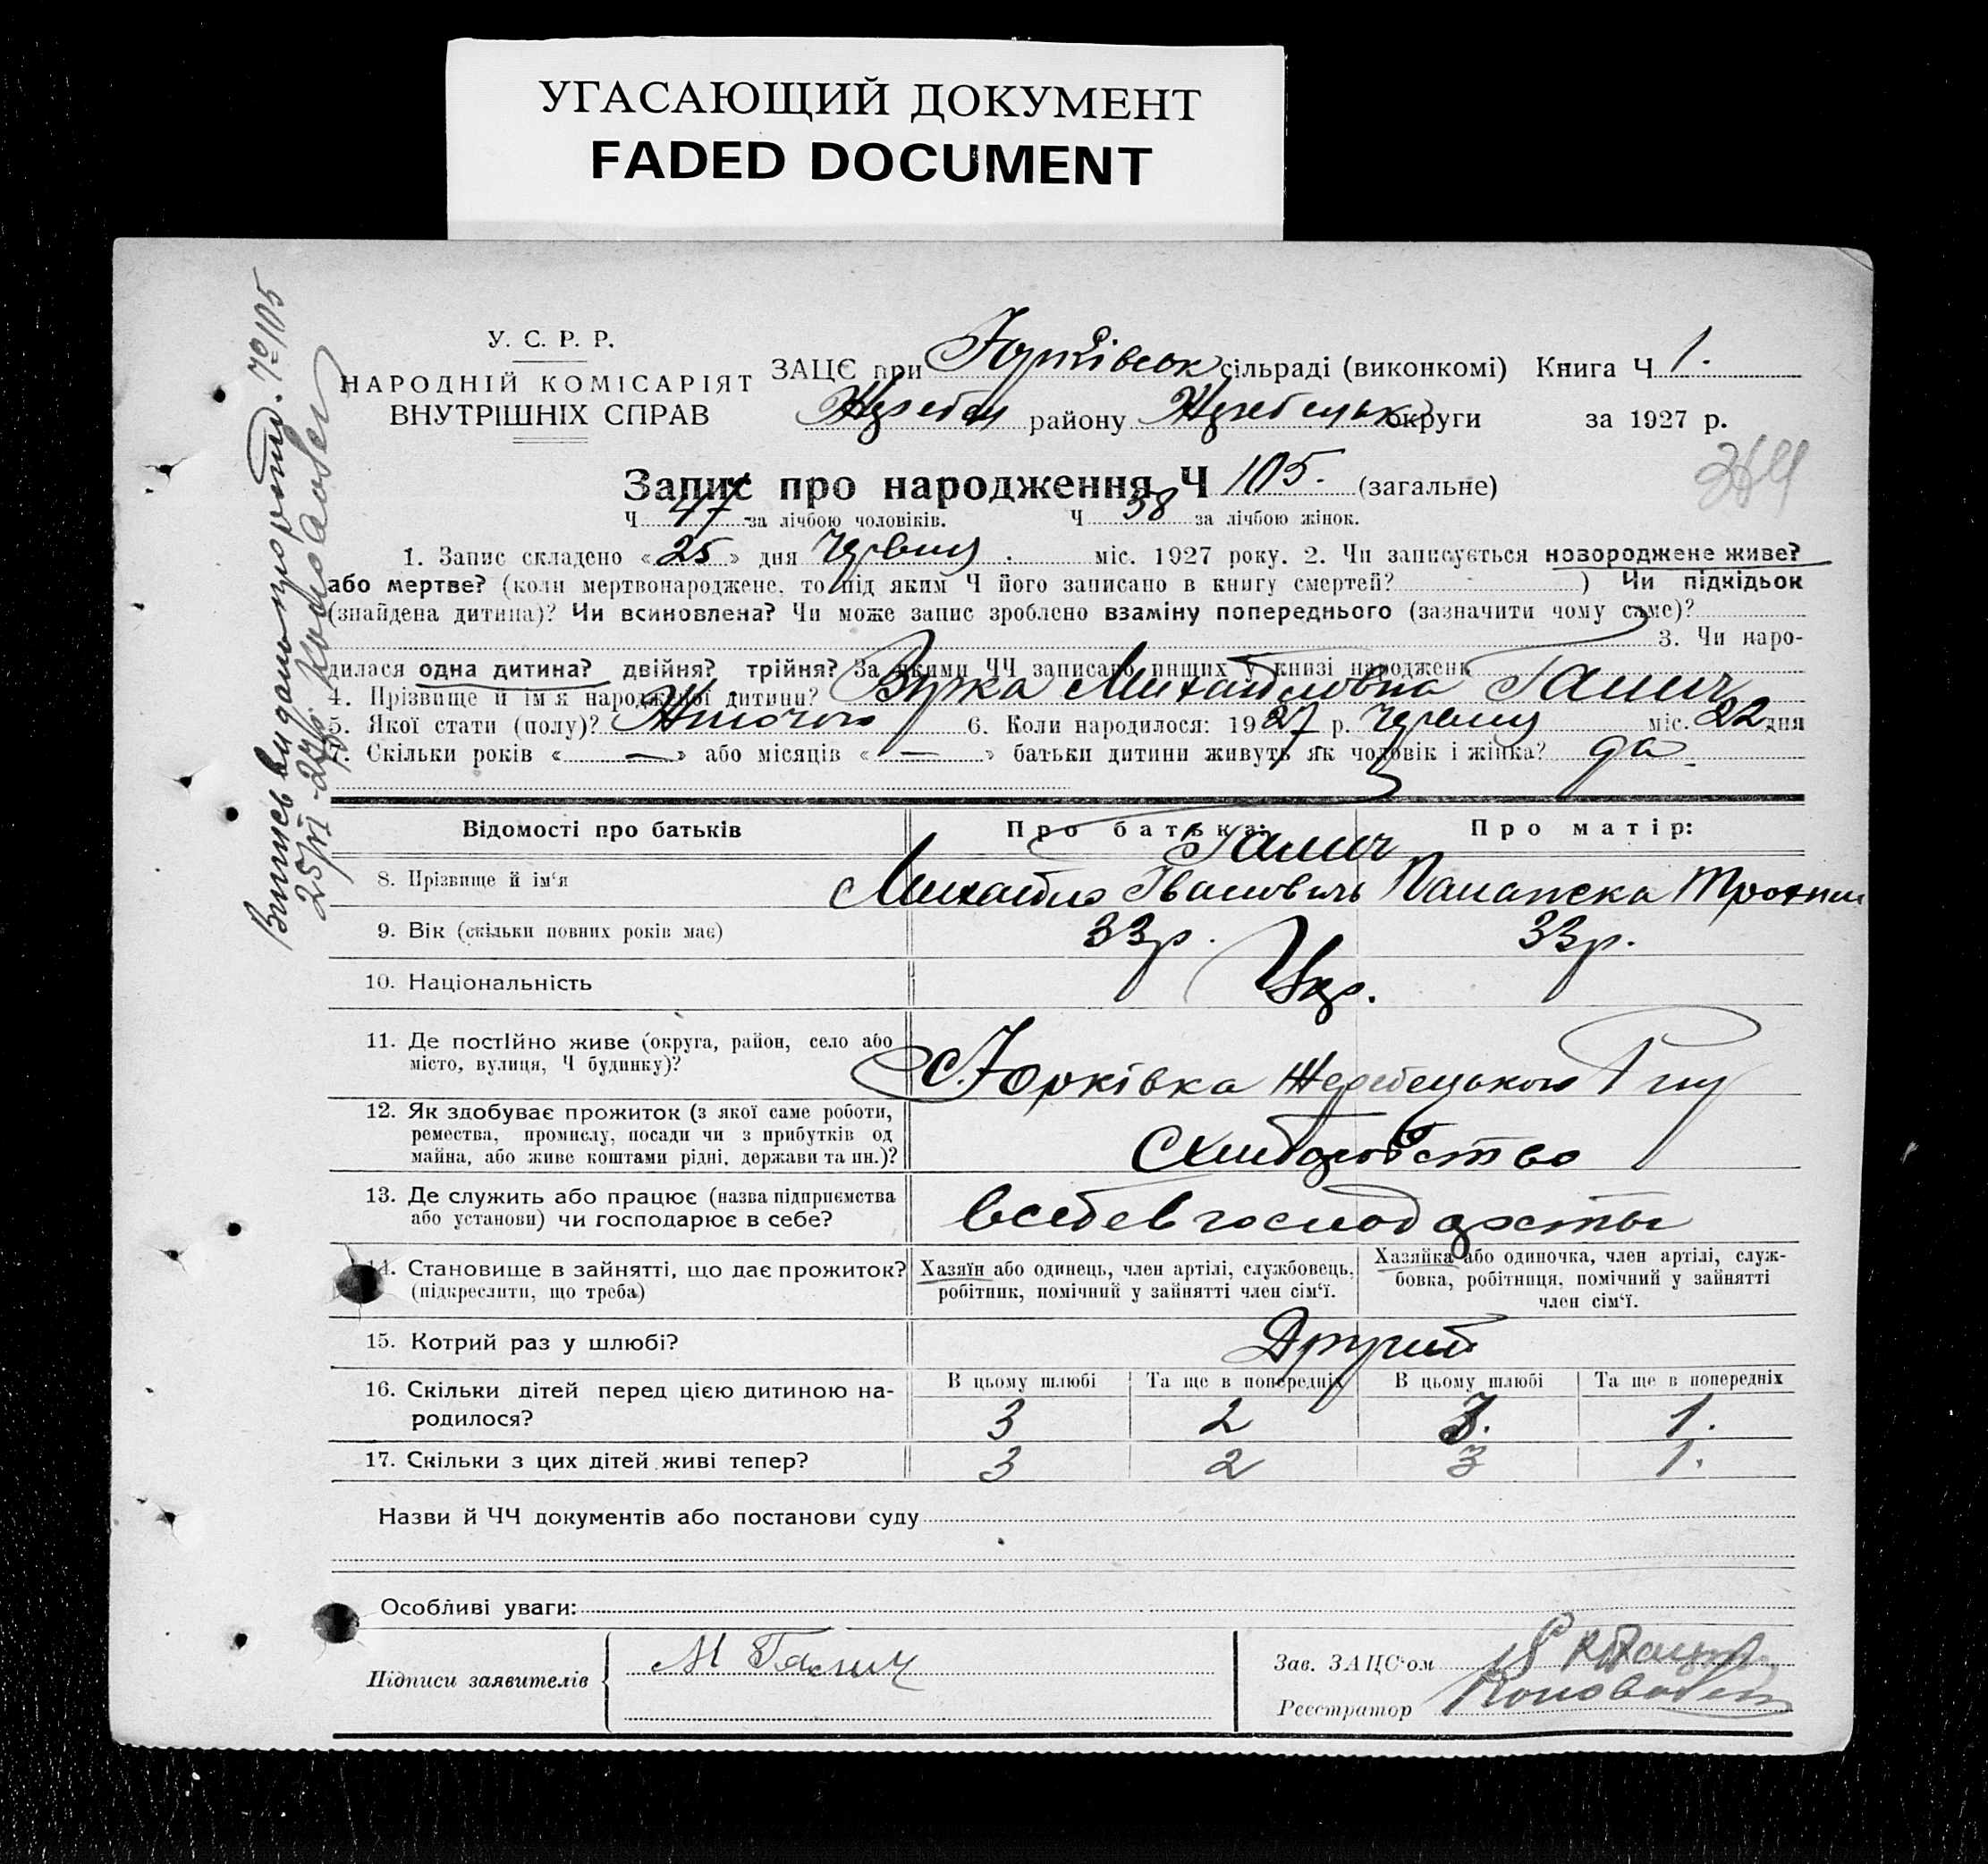 УГАСАЮЩИЙ ДОКУМЕНТ
FADED DOCUMENT
У. С. Р. Р.
НАРОДНІЙ КОМІСАРІЯТ
ВНУТРІШНІХ СПРАВ
ЗАЦС при Юрківськ сільраді (виконкомі) Книга Ч 1.
району округи за 1927 р.
Запис про народження Ч 105. (загальне)
Ч 47 за лічбою чоловіків. Ч 58 за лічбою жінок.
1. Запис складено «25» дня Червня міс. 1927 року. 2. Чи записується новороджене живе?
або мертве? (коли мертвонароджене, то під яким Ч його записано в книгу смертей? ) Чи підкідьок
(знайдена дитина)? Чи всиновлена? Чи може запис зроблено взаміну попереднього (зазначити чому саме)?
3. Чи наро-
дилася одна дитина? двійня? трійня? За якими ЧЧ записано инших у книзі народжень
4. Прізвище й ім'я народженої дитини? Михайловна Галич
5. Якої стати (полу)? Жіночого 6. Коли народилося: 1927 р. Червня міс. 22 дня
7. Скільки років «—» або місяців «—» батьки дитини живуть як чоловік і жінка? да
Відомості про батьків
Про батька:
Про матір:
Галич
8. Прізвище й ім'я
Михайло Іванович
Панаська
9. Вік (скільки повних років має)
33р.
33р.
10. Національність
Укр.
11. Де постійно живе (округа, район, село або
місто, вулиця, Ч будинку)?
С. Юрківка Жеребецького Р-ну
12. Як здобуває прожиток (з якої саме роботи,
ремества, промислу, посади чи з прибутків од
майна, або живе коштами рідні, держави та ин.)?
13. Де служить або працює (назва підприємства
або установи) чи господарює в себе?
14. Становище в зайнятті, що дає прожиток?
(підкреслити, що треба)
Хазяїн або одинець, член артілі, службовець,
робітник, помічний у зайнятті член сім'ї.
Хазяйка або одиночка, член артілі, служ-
бовка, робітниця, помічний у зайнятті
член сім'ї.
15. Котрий раз у шлюбі?
Другий
16. Скільки дітей перед цією дитиною на-
родилося?
В цьому шлюбі
Та ще в попередніх
В цьому шлюбі
Та ще в попередніх
3
2
3.
1.
17. Скільки з цих дітей живі тепер?
3
2
3
1.
Назви й ЧЧ документів або постанови суду
Особливі уваги:
Підписи заявителів
М Галич
Зав. ЗАЦС'ом
Реєстратор